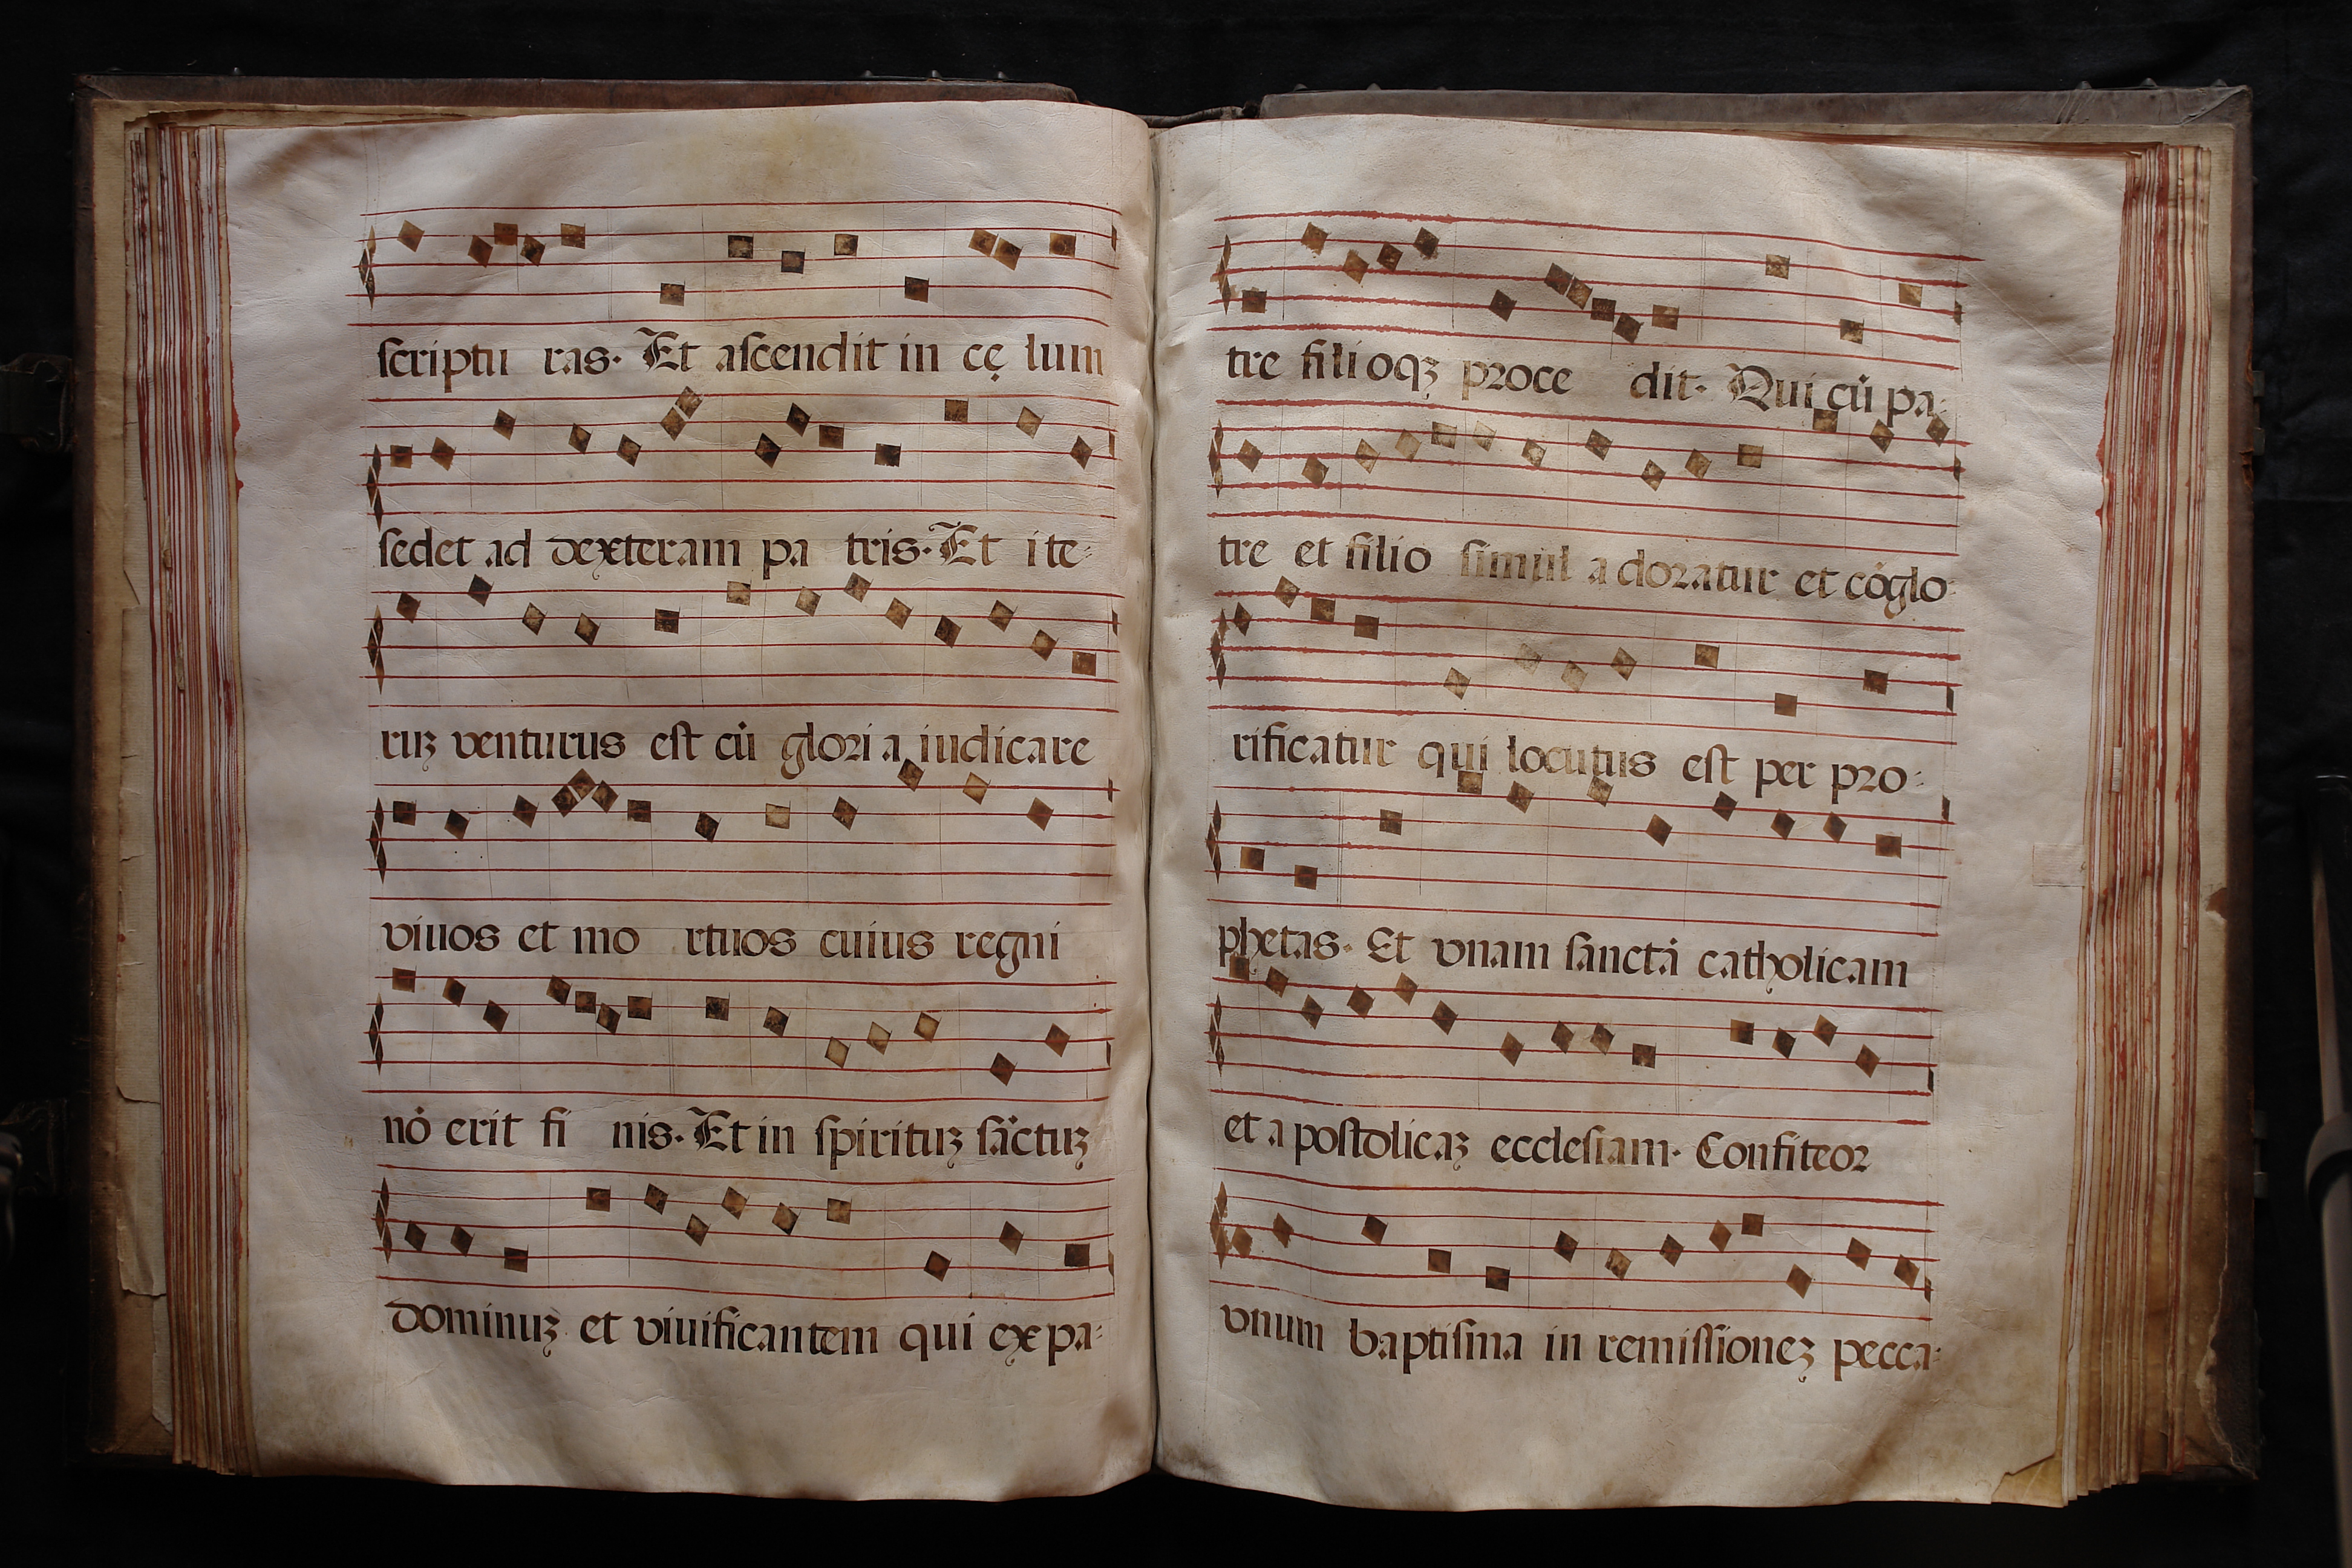 ſcriptu ras. Et aſcendit in cę lum
ſedet ad dexteram pa tris. Et ite:
ruꝫ venturus eſt cu̇ gloria iudicare
viuos et mo rtuos cuius regni
nȯ erit fi nis. Et in ſpirituꝫ ſȧctuꝫ
dominuꝫ et viuificantem qui ex pa:
tre filioqꝫ proce dit. Qui cu̇ pa:
tre et filio ſimul adoratur et cȯglo:
rificatur qui locutus eſt per pro:
phetas. Et vnam ſanctȧ catholicam
et apoſtolicaꝫ eccleſiam. Confiteor
vnum baptiſma in remiſſioneꝫ pecca: